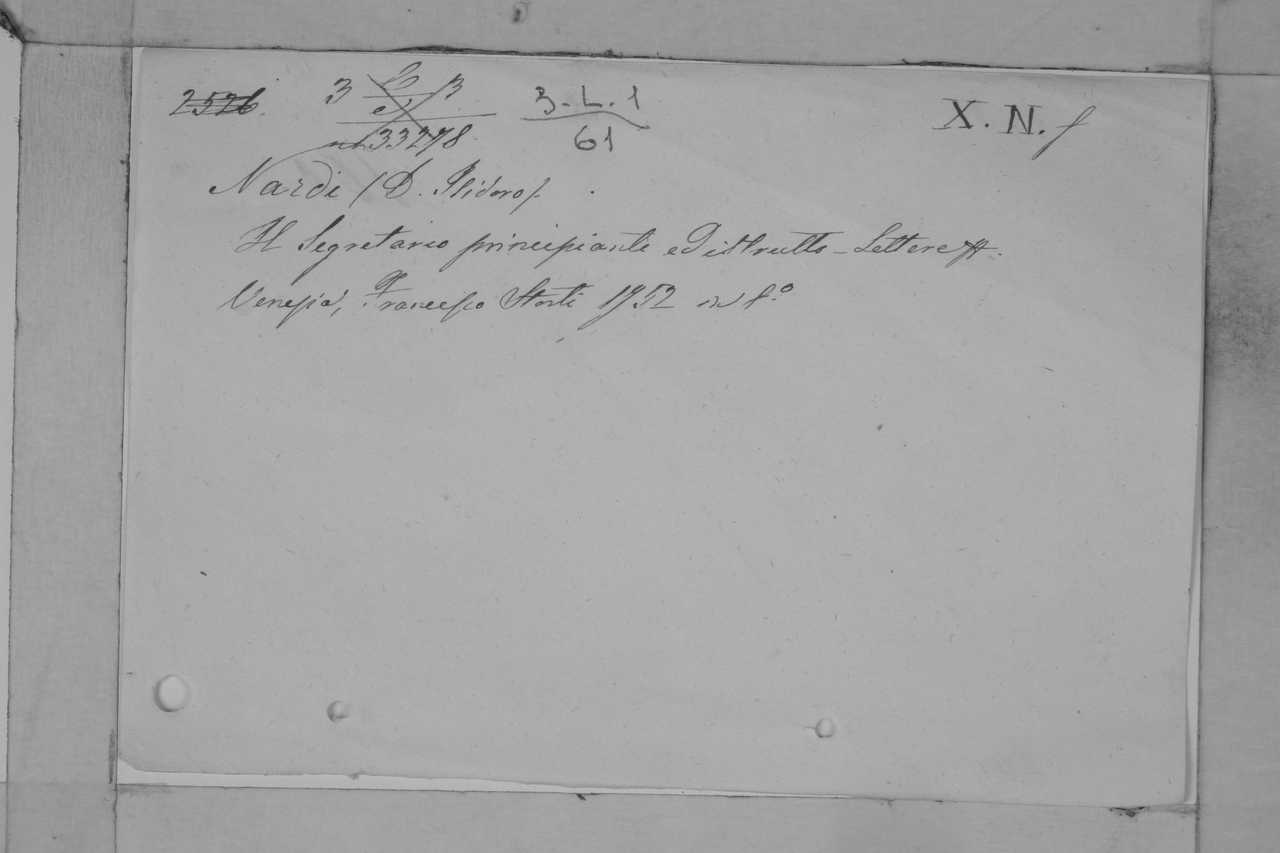 2526. 3 3 3-L.1 X.N.f
33278 61
Nardi (D. Isidoro).
Il Segretario principiante ed istrutto - Lettere
Venezia, Francesco Storti 1752 in 8.º